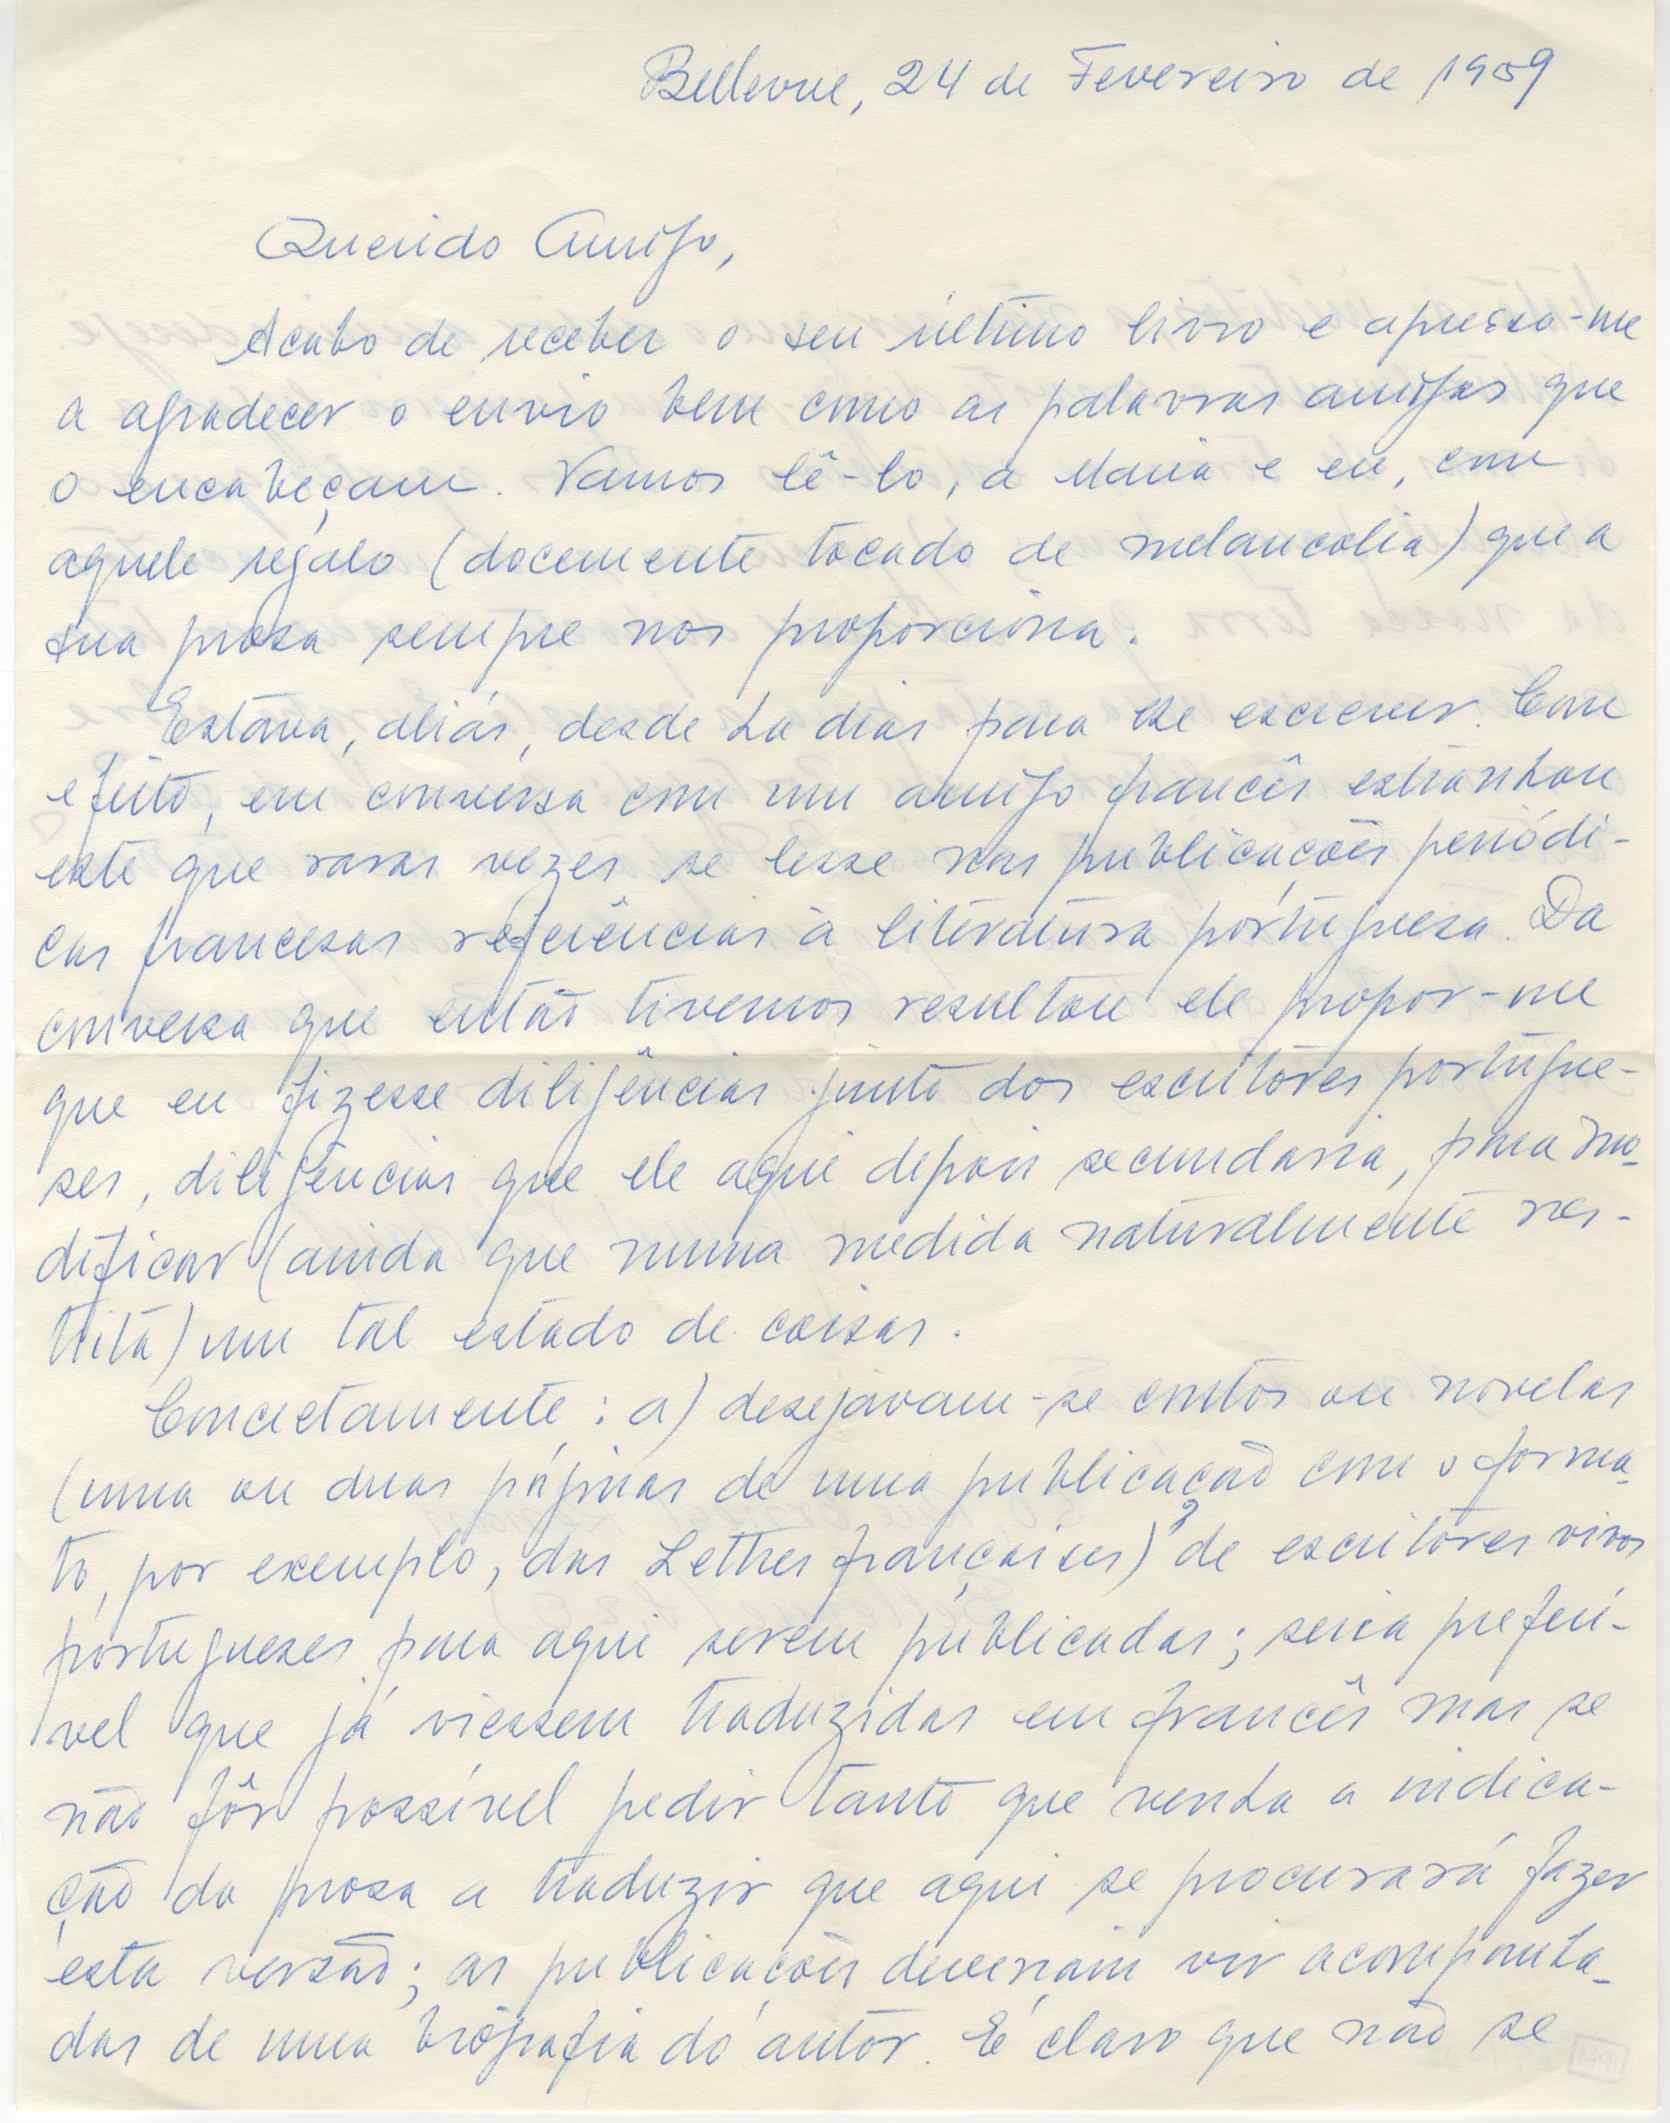 Bellevue, 24 de Fevereiro de 1959
Querido Amigo,
Acabo de receber o seu último livro e apresso-me
a agradecer o envio bem como as palavras amigas que
o encabeçam. Vamos lê-lo, a Maria e eu, com
aquele regalo (docemente tocado de melancolia) que a
sua prosa sempre nos proporciona.
Estava, aliás, desde há dias para lhe escrever. Com
efeito, em conversa com um amigo francês estranhou
este que raras vezes se lesse nas publicações periódi-
cas francesas referências à literatura portuguesa. Da
conversa que então tivemos resultou ele propor-me
que eu fizesse diligências junto dos escritores portugue-
ses, diligências que ele aqui depois secundaria, para mo-
dificar (ainda que numa medida naturalmente res-
trita) um tal estado de coisas.
Concretamente: a) desejavam-se contos ou novelas
(uma ou duas páginas de uma publicação com o forma-
to, por exemplo, das Lettres françaises), de escritores vivos
portugueses para aqui serem publicadas; seria preferí-
vel que já viessem traduzidas em francês mas se
não fôr possível pedir tanto que venha a indica-
ção da prosa a traduzir que aqui se procurará fazer
esta versão; as publicações deveriam vir acompanha-
das de uma biografia do autor. É claro que não se